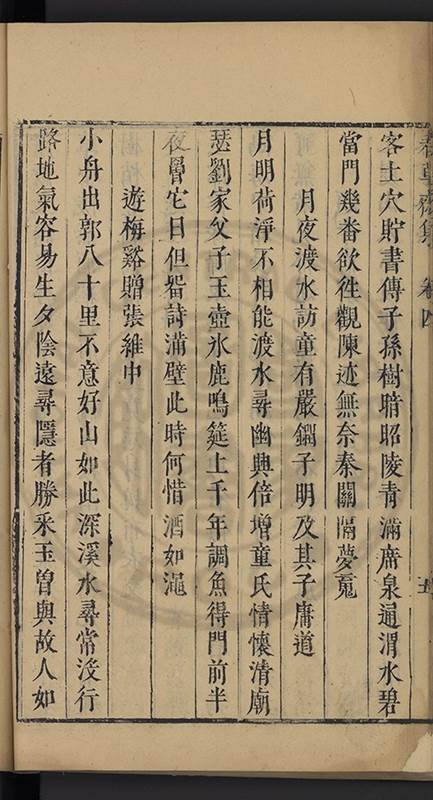 春草齋集 卷四 五
客土穴貯書傳子孫樹暗昭陵青滿席泉通渭水碧
當門幾畨欲徃觀陳迹無奈秦關隔夢䰟
月夜渡水訪童有嚴鐦子明及其子庸道
月明荷淨不相能渡水尋幽興倍增童氏情懷清廟
瑟劉家父子玉壺氷鹿鳴筵上千年調魚得門前半
夜罾它日但畱詩滿壁此時何惜酒如澠
遊梅谿贈張維中
小舟出郭八十里不意好山如此深溪水尋常没行
路地氣容易生夕隂遠尋隱者勝采玉曽與故人如